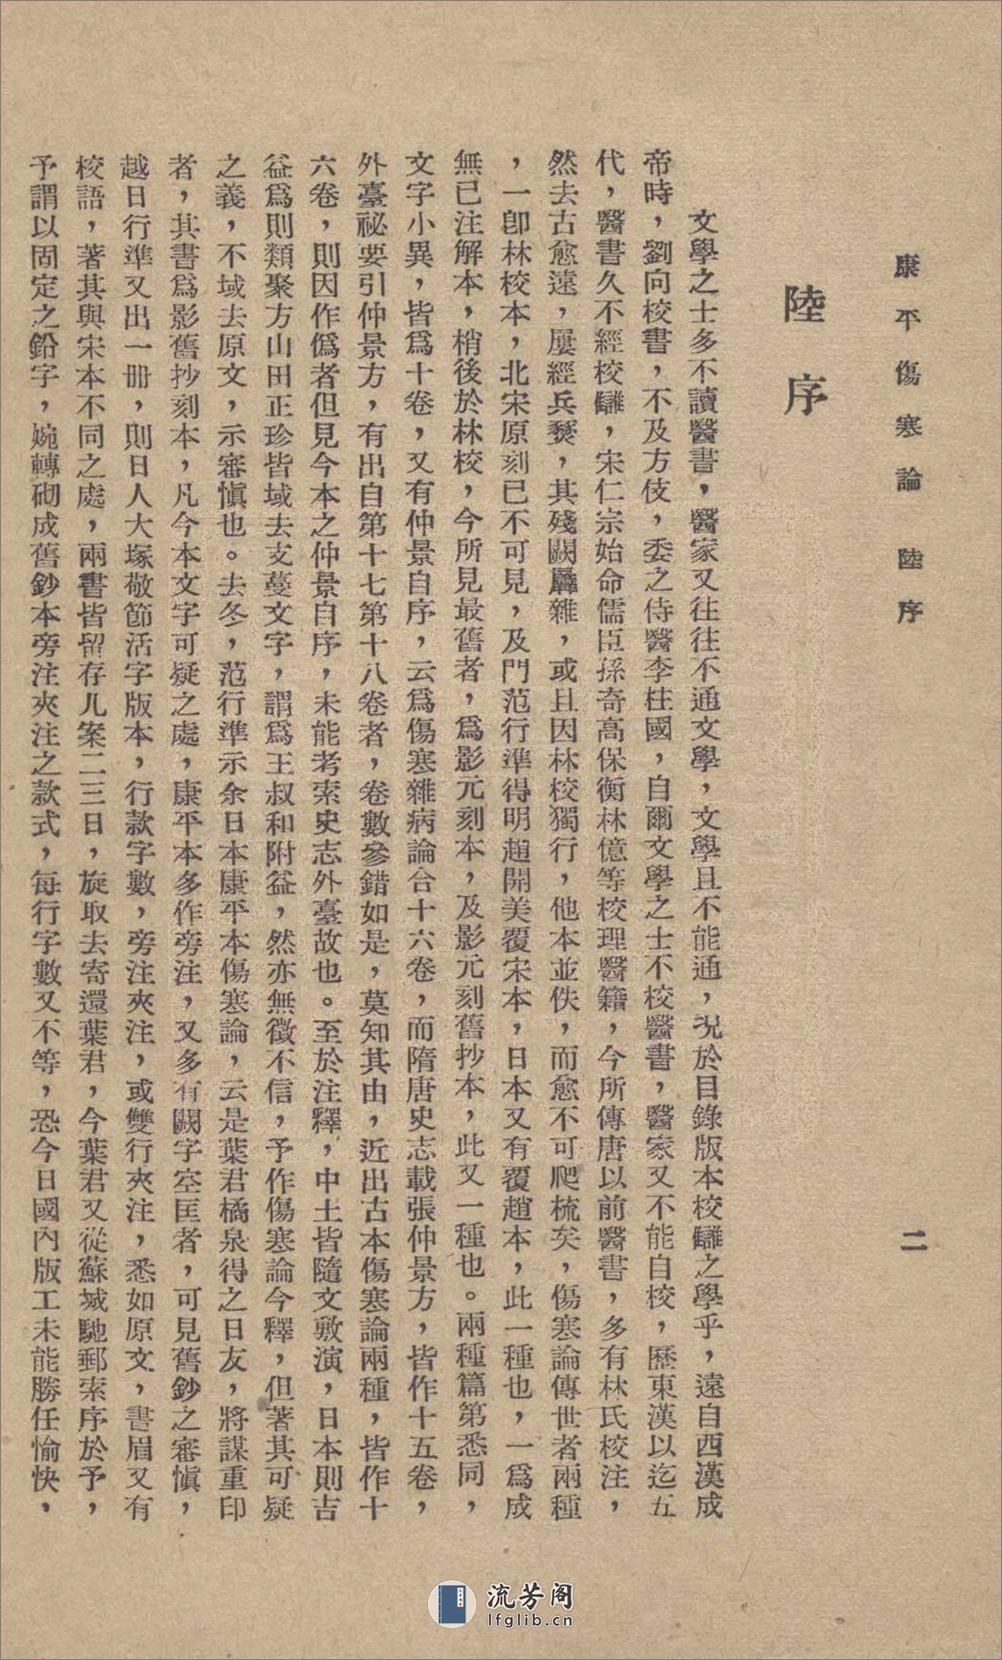 康平傷寒論 陸序 二
陸序
文學之士多不讀醫書，醫家又往往不通文學，文學且不能通，況於目錄版本校讎之學乎，遠自西漢成
帝時，劉向校書，不及方伎，委之侍醫李柱國，自爾文學之士不校醫書，醫家又不能自校，歷東漢以迄五
代，醫書久不經校讎，宋仁宗始命儒臣孫奇高保衡林億等校理醫籍，今所傳唐以前醫書，多有林氏校注，
然去古愈遠，屢經兵燹，其殘闕羼雜，或且因林校獨行，他本並佚，而愈不可爬梳矣，傷寒論傳世者兩種
，一卽林校本，北宋原刻已不可見，及門范行準得明趙開美覆宋本，日本又有覆趙本，此一種也，一爲成
無已注解本，梢後於林校，今所見最舊者，爲影元刻本，及影元刻舊抄本，此又一種也。兩種篇第悉同，
文字小異，皆爲十卷，又有仲景自序，云爲傷寒雜病論合十六卷，而隋唐史志載張仲景方，皆作十五卷，
外臺祕要引仲景方，有出自第十七第十八卷者，卷數參錯如是，莫知其由，近出古本傷寒論兩種，皆作十
六卷，則因作僞者但見今本之仲景自序，未能考索史志外臺故也。至於注釋，中土皆隨文敷演，日本則吉
益爲則類聚方山田正珍皆域去支蔓文字，謂爲王叔和附益，然亦無徵不信，予作傷寒論今釋，但著其可疑
之義，不域去原文，示審愼也。去冬，范行準示余日本康平本傷寒論，云是葉君橘泉得之日友，將謀重印
者，其書爲影舊抄刻本，凡今本文字可疑之處，康平本多作旁注，又多有闕字空匡者，可見舊鈔之審愼，
越日行準又出一冊，則日人大塚敬節活字版本，行款字數，旁注夾注，或雙行夾注，悉如原文，書眉又有
校語，著其與宋本不同之處，兩書皆留存几案二三日，旋取去寄還葉君，今葉君又從蘇城馳郵索序於予，
予謂以固定之鉛字，婉轉砌成舊鈔本旁注夾注之款式，每行字數又不等，恐今日國內版工未能勝任愉快，
流芳阁
lfglib.cn